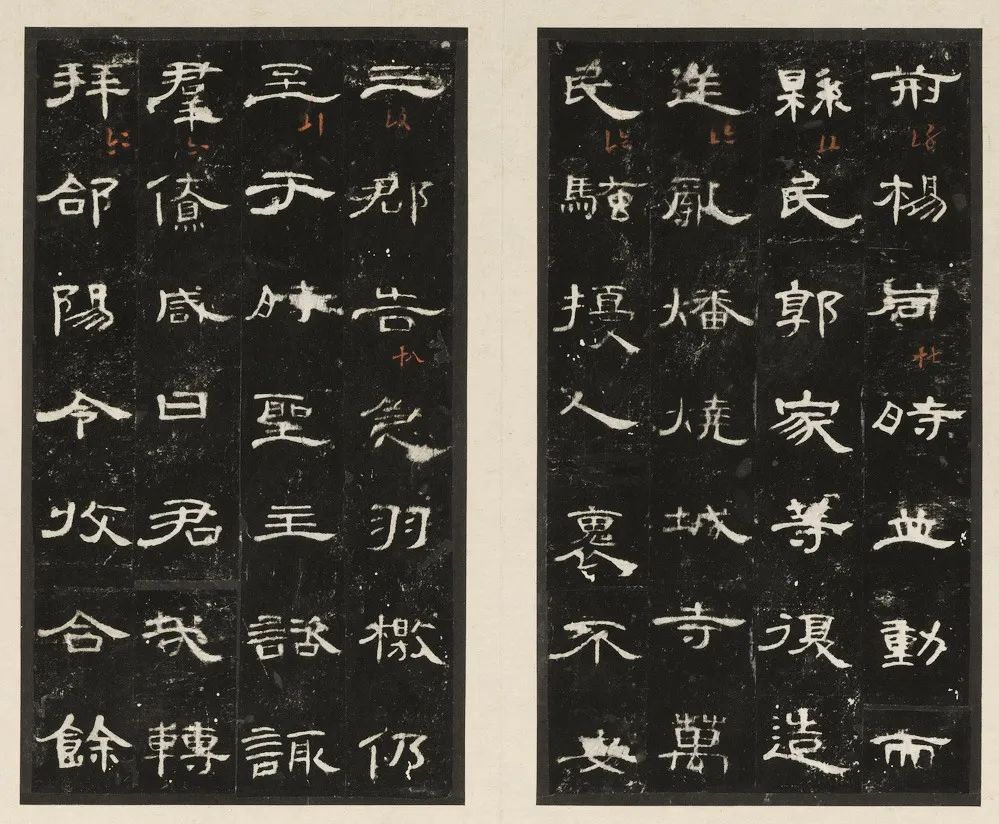 荊楊同時並動而
縣民郭家等復造
逆亂燔燒城寺萬
民騷擾人裹不安
三郡告急羽檄仍
至于時聖主諮諏
羣僚咸曰君哉轉
拜郃陽令收合餘